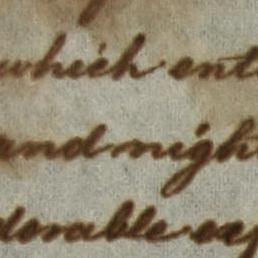 which ent
and night
dorable exp